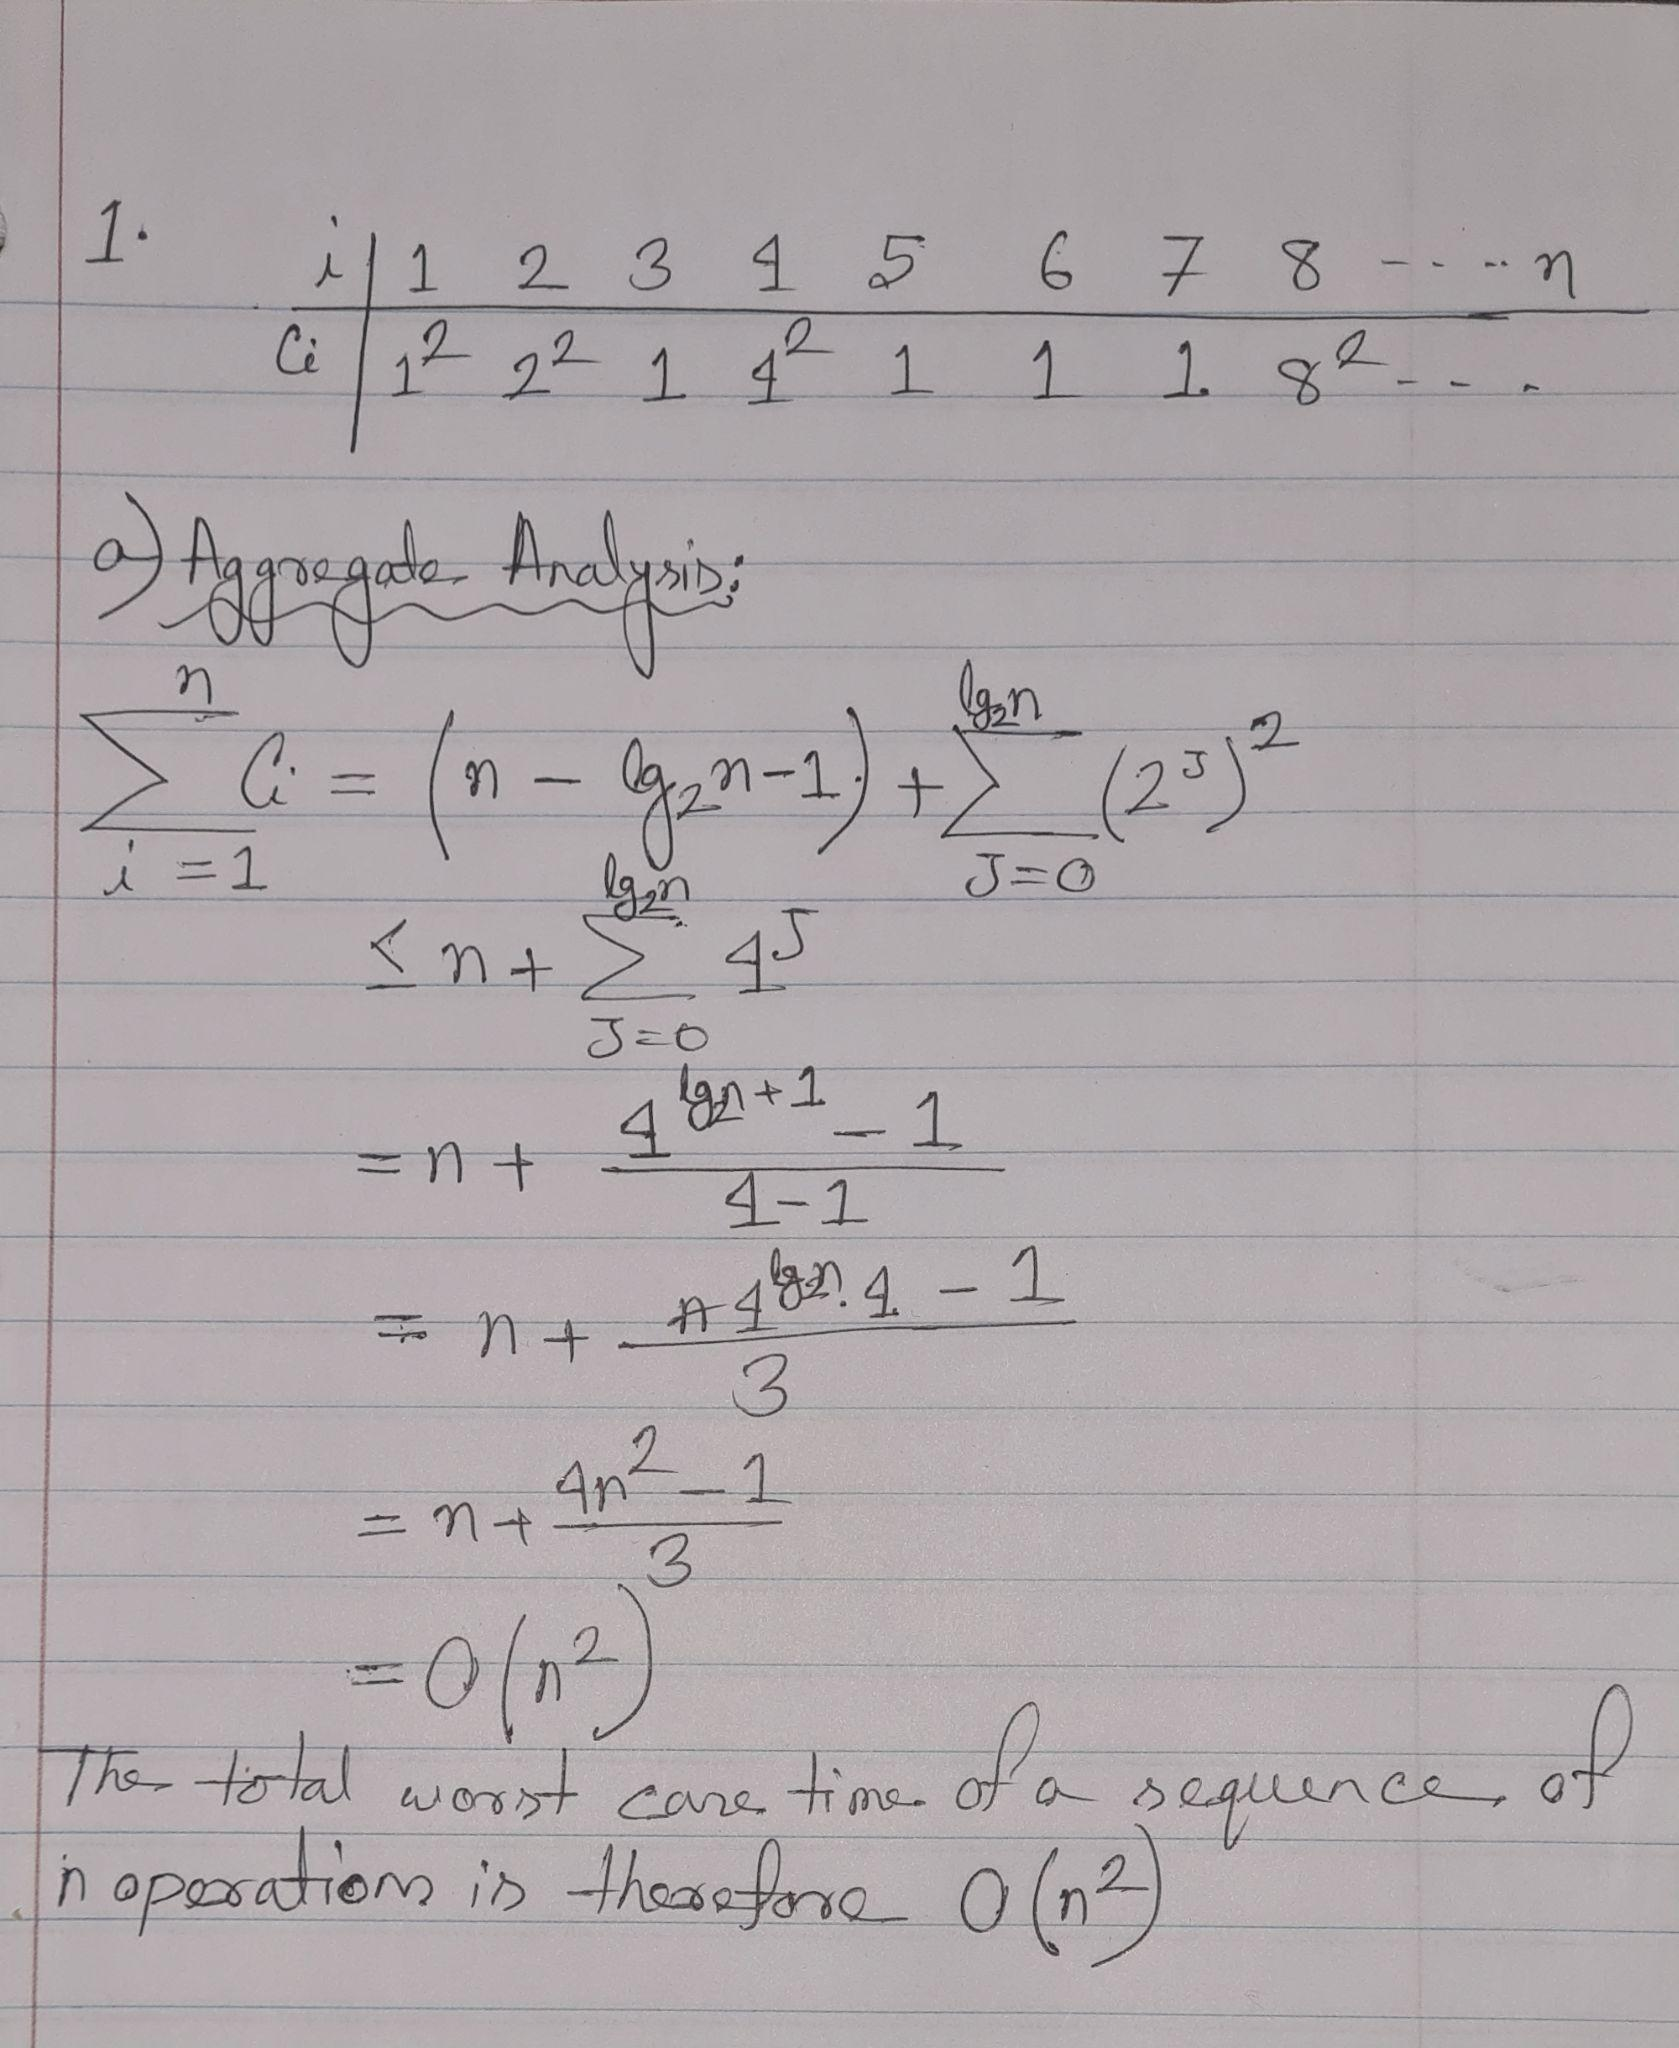 1.
i | 1 2 3 4 5 6 7 8 ----- n
Ci | 1² 2² 1 4² 1 1 1 8² - - - .
a) Aggregate Analysis:
∑_{i=1}^{n} Ci = (n - lg₂n-1) + ∑_{J=0}^{lg₂n} (2^J)²
≤ n + ∑_{J=0}^{lg₂n} 4^J
= n + (4^{lg₂n+1} - 1)/(4-1)
= n + (4^{lg₂n}. 4 - 1)/3
= n + (4n² - 1)/3
= O(n²)
The total worst case time of a sequence of
n operations is therefore O(n²)